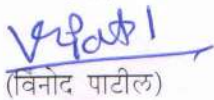 (विनोद पाटील)